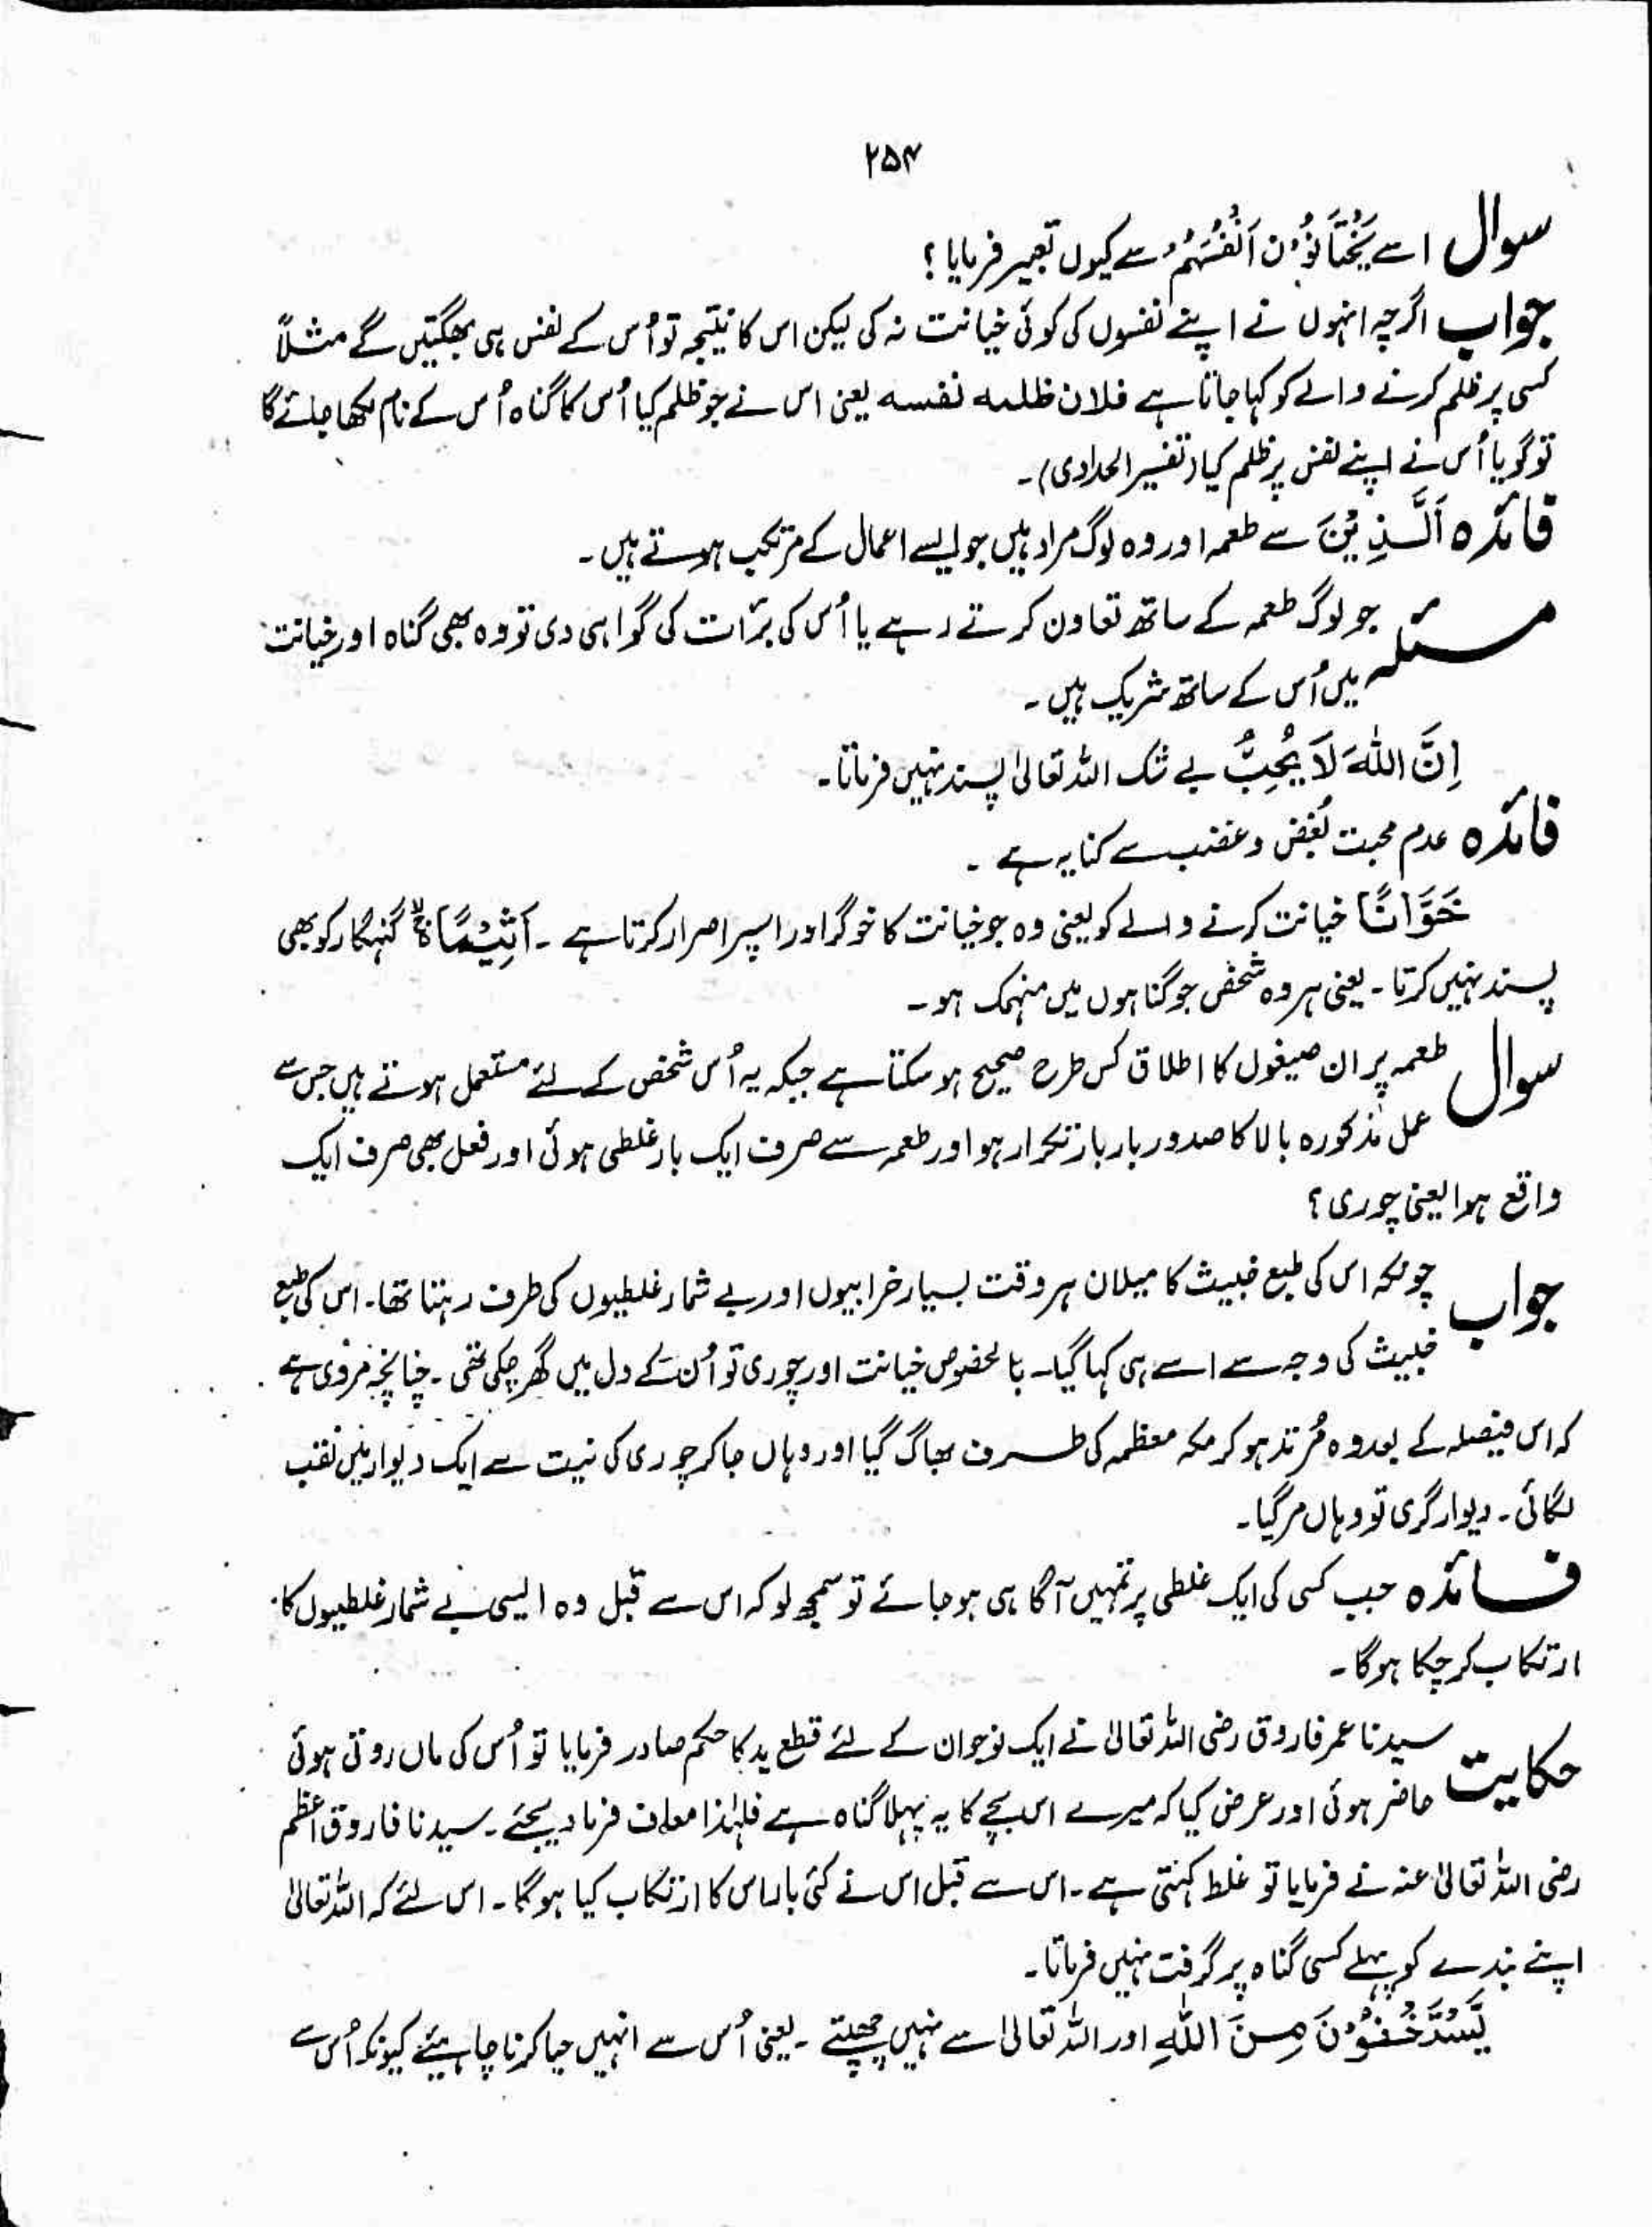 ۲۵۴
سوال اسے يَخْتَانُوْنَ اَنْفُسَهُمْ سے کیوں تعبیر فرمایا؟
جواب اگرچہ انہوں نے اپنے نفسوں کی کوئی خیانت نہ کی لیکن اس کا نتیجہ تو اُس کے نفس ہی بھگتیں گے مثلاً
کسی پر ظلم کرنے والے کو کہا جاتا ہے فلان ظلمہ نفسہ یعنی اس نے جو ظلم کیا اُس کا گناہ اُس کے نام لکھا جائے گا
تو گویا اُس نے اپنے نفس پر ظلم کیا (تفسیر الحدادی)۔
فائدہ اَلَّذِيْنَ سے طعمہ اور وہ لوگ مراد ہیں جو ایسے اعمال کے مرتکب ہوتے ہیں۔
مسئلہ جو لوگ طعمہ کے ساتھ تعاون کرتے رہے یا اُس کی برٔات کی گواہی دی تو وہ بھی گناہ اور خیانت
میں اُس کے ساتھ شریک ہیں۔
اِنَّ اللّٰهَ لَا يُحِبُّ بے شک اللہ تعالیٰ پسند نہیں فرماتا۔
فائدہ عدم محبت بُغض و غضب سے کنایہ ہے ۔
خَوَّانًا خیانت کرنے والے کو یعنی وہ جو خیانت کا خوگر اور اسپر اصرار کرتا ہے ۔ اَثِيْمًا ۙ گنہگار کو بھی
پسند نہیں کرتا ۔ یعنی ہر وہ شخص جو گناہوں میں منہمک ہو ۔
سوال طعمہ پر ان صیغوں کا اطلاق کس طرح صحیح ہو سکتا ہے جبکہ یہ اُس شخص کے لئے مستعمل ہوتے ہیں جس سے
عمل مذکورہ بالا کا صدور بار بار تکرار ہو اور طعمہ سے صرف ایک بار غلطی ہوئی اور فعل بھی صرف ایک
واقع ہوا یعنی چوری؟
جواب چونکہ اس کی طبع خبیث کا میلان ہر وقت بسیار خرابیوں اور بے شمار غلطیوں کی طرف رہتا تھا۔ اس کی طبع
خبیث کی وجہ سے اسے ہی کہا گیا۔ بالخصوص خیانت اور چوری تو اُن کے دل میں گھر چکی تھی ۔ چنانچہ مروی ہے
کہ اس فیصلہ کے بعد وہ مُرتد ہو کر مکہ معظمہ کی طرف بھاگ گیا اور وہاں جا کر چوری کی نیت سے ایک دیوار میں نقب
لگائی ۔ دیوار گری تو وہاں مر گیا ۔
فائدہ جب کسی کی ایک غلطی پر تمہیں آگاہی ہو جائے تو سمجھ لو کہ اس سے قبل وہ ایسی بے شمار غلطیوں کا
ارتکاب کر چکا ہوگا ۔
حکایت سیدنا عمر فاروق رضی اللہ تعالیٰ نے ایک نوجوان کے لئے قطع ید کا حکم صادر فرمایا تو اُس کی ماں روتی ہوئی
حاضر ہوئی اور عرض کیا کہ میرے اس بچے کا یہ پہلا گناہ ہے فلہٰذا معاف فرما دیجئے ۔ سیدنا فاروق اعظم
رضی اللہ تعالیٰ عنہ نے فرمایا تو غلط کہتی ہے ۔ اس سے قبل اس نے کئی بار اس کا ارتکاب کیا ہوگا ۔ اس لئے کہ اللہ تعالیٰ
اپنے بندے کو پہلے کسی گناہ پر گرفت نہیں فرماتا ۔
يَسْتَخْفُوْنَ مِنَ اللّٰهِ اور اللہ تعالیٰ سے نہیں چھپتے ۔ یعنی اُس سے انہیں حیا کرنا چاہیئے کیونکہ اُس سے